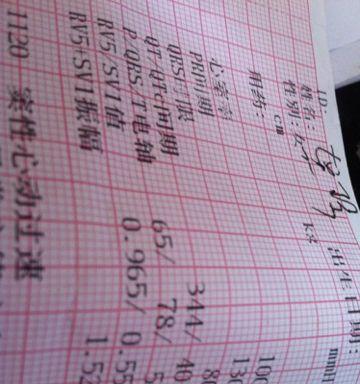 ID:
姓名:
性别: 女 出生日期:
cm kg mmH
用药:
心室率 10
PR间期 13
QRS时限 8
QT/QTc间期 344/ 40
P/QRS/T电轴 65/ 78/ 5
RV5/SV1值 0.965/ 0.55
RV5+SV1振幅 1.52
1120 窦性心动过速